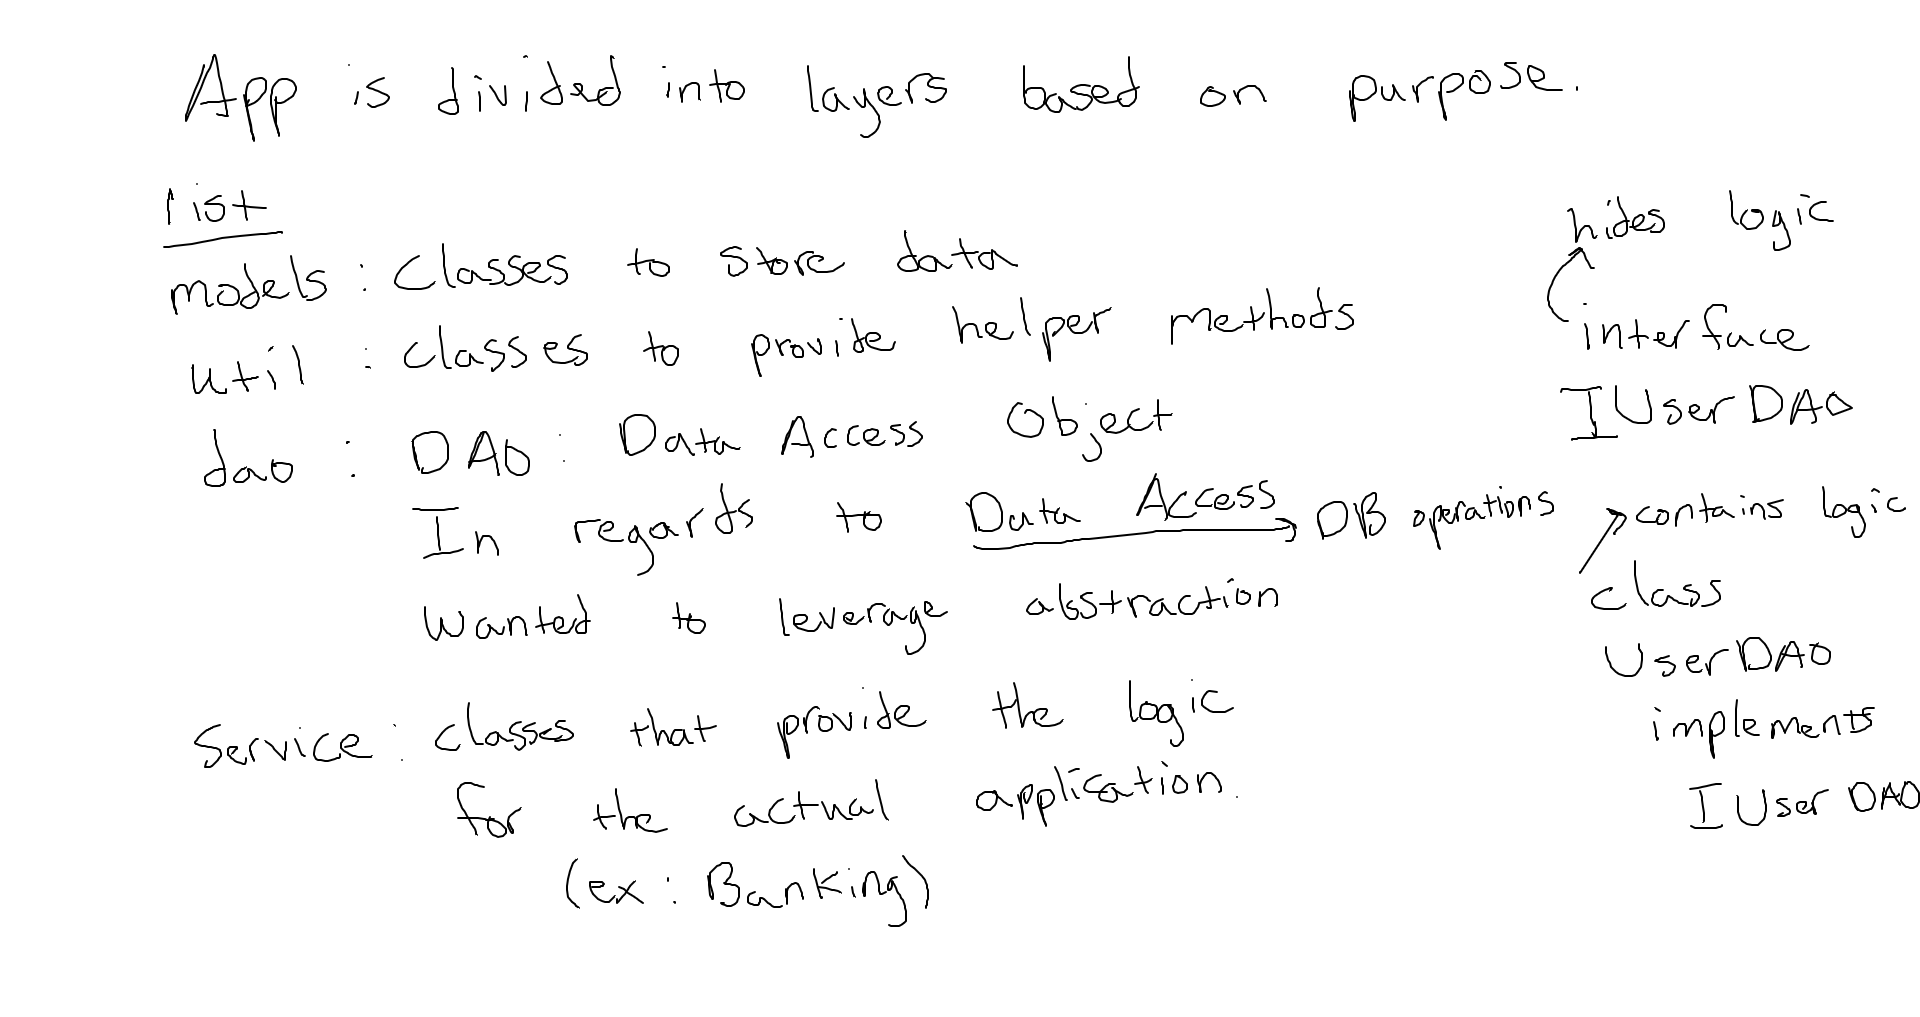 App is divided into layers based on purpose.
list
models : classes to store data
util : classes to provide helper methods
dao : DAO : Data Access Object
In regards to Data Access → DB operations
wanted to leverage abstraction
Service : classes that provide the logic
for the actual application.
(ex : Banking)
hides logic
interface
IUserDAO
contains logic
class
UserDAO
implements
IUserDAO